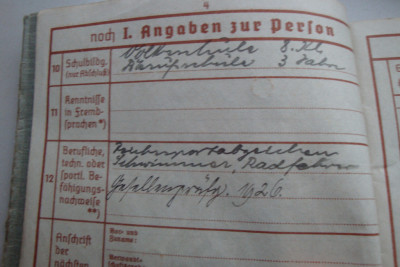 4
noch I. Angaben zur Person
10 Schulbildg. (nur Abschluß)
Volksschule 8. Kl.
Berufsschule 3 Jahre
11 Kenntnisse in Fremdsprachen *)
12 Berufliche, techn. oder sportl. Befähigungsnachweise **)
Reichssportabzeichen
Schwimmer, Radfahrer
Gesellenprüfg. 1926.
Anschrift der nächsten
Vor- und Zuname: